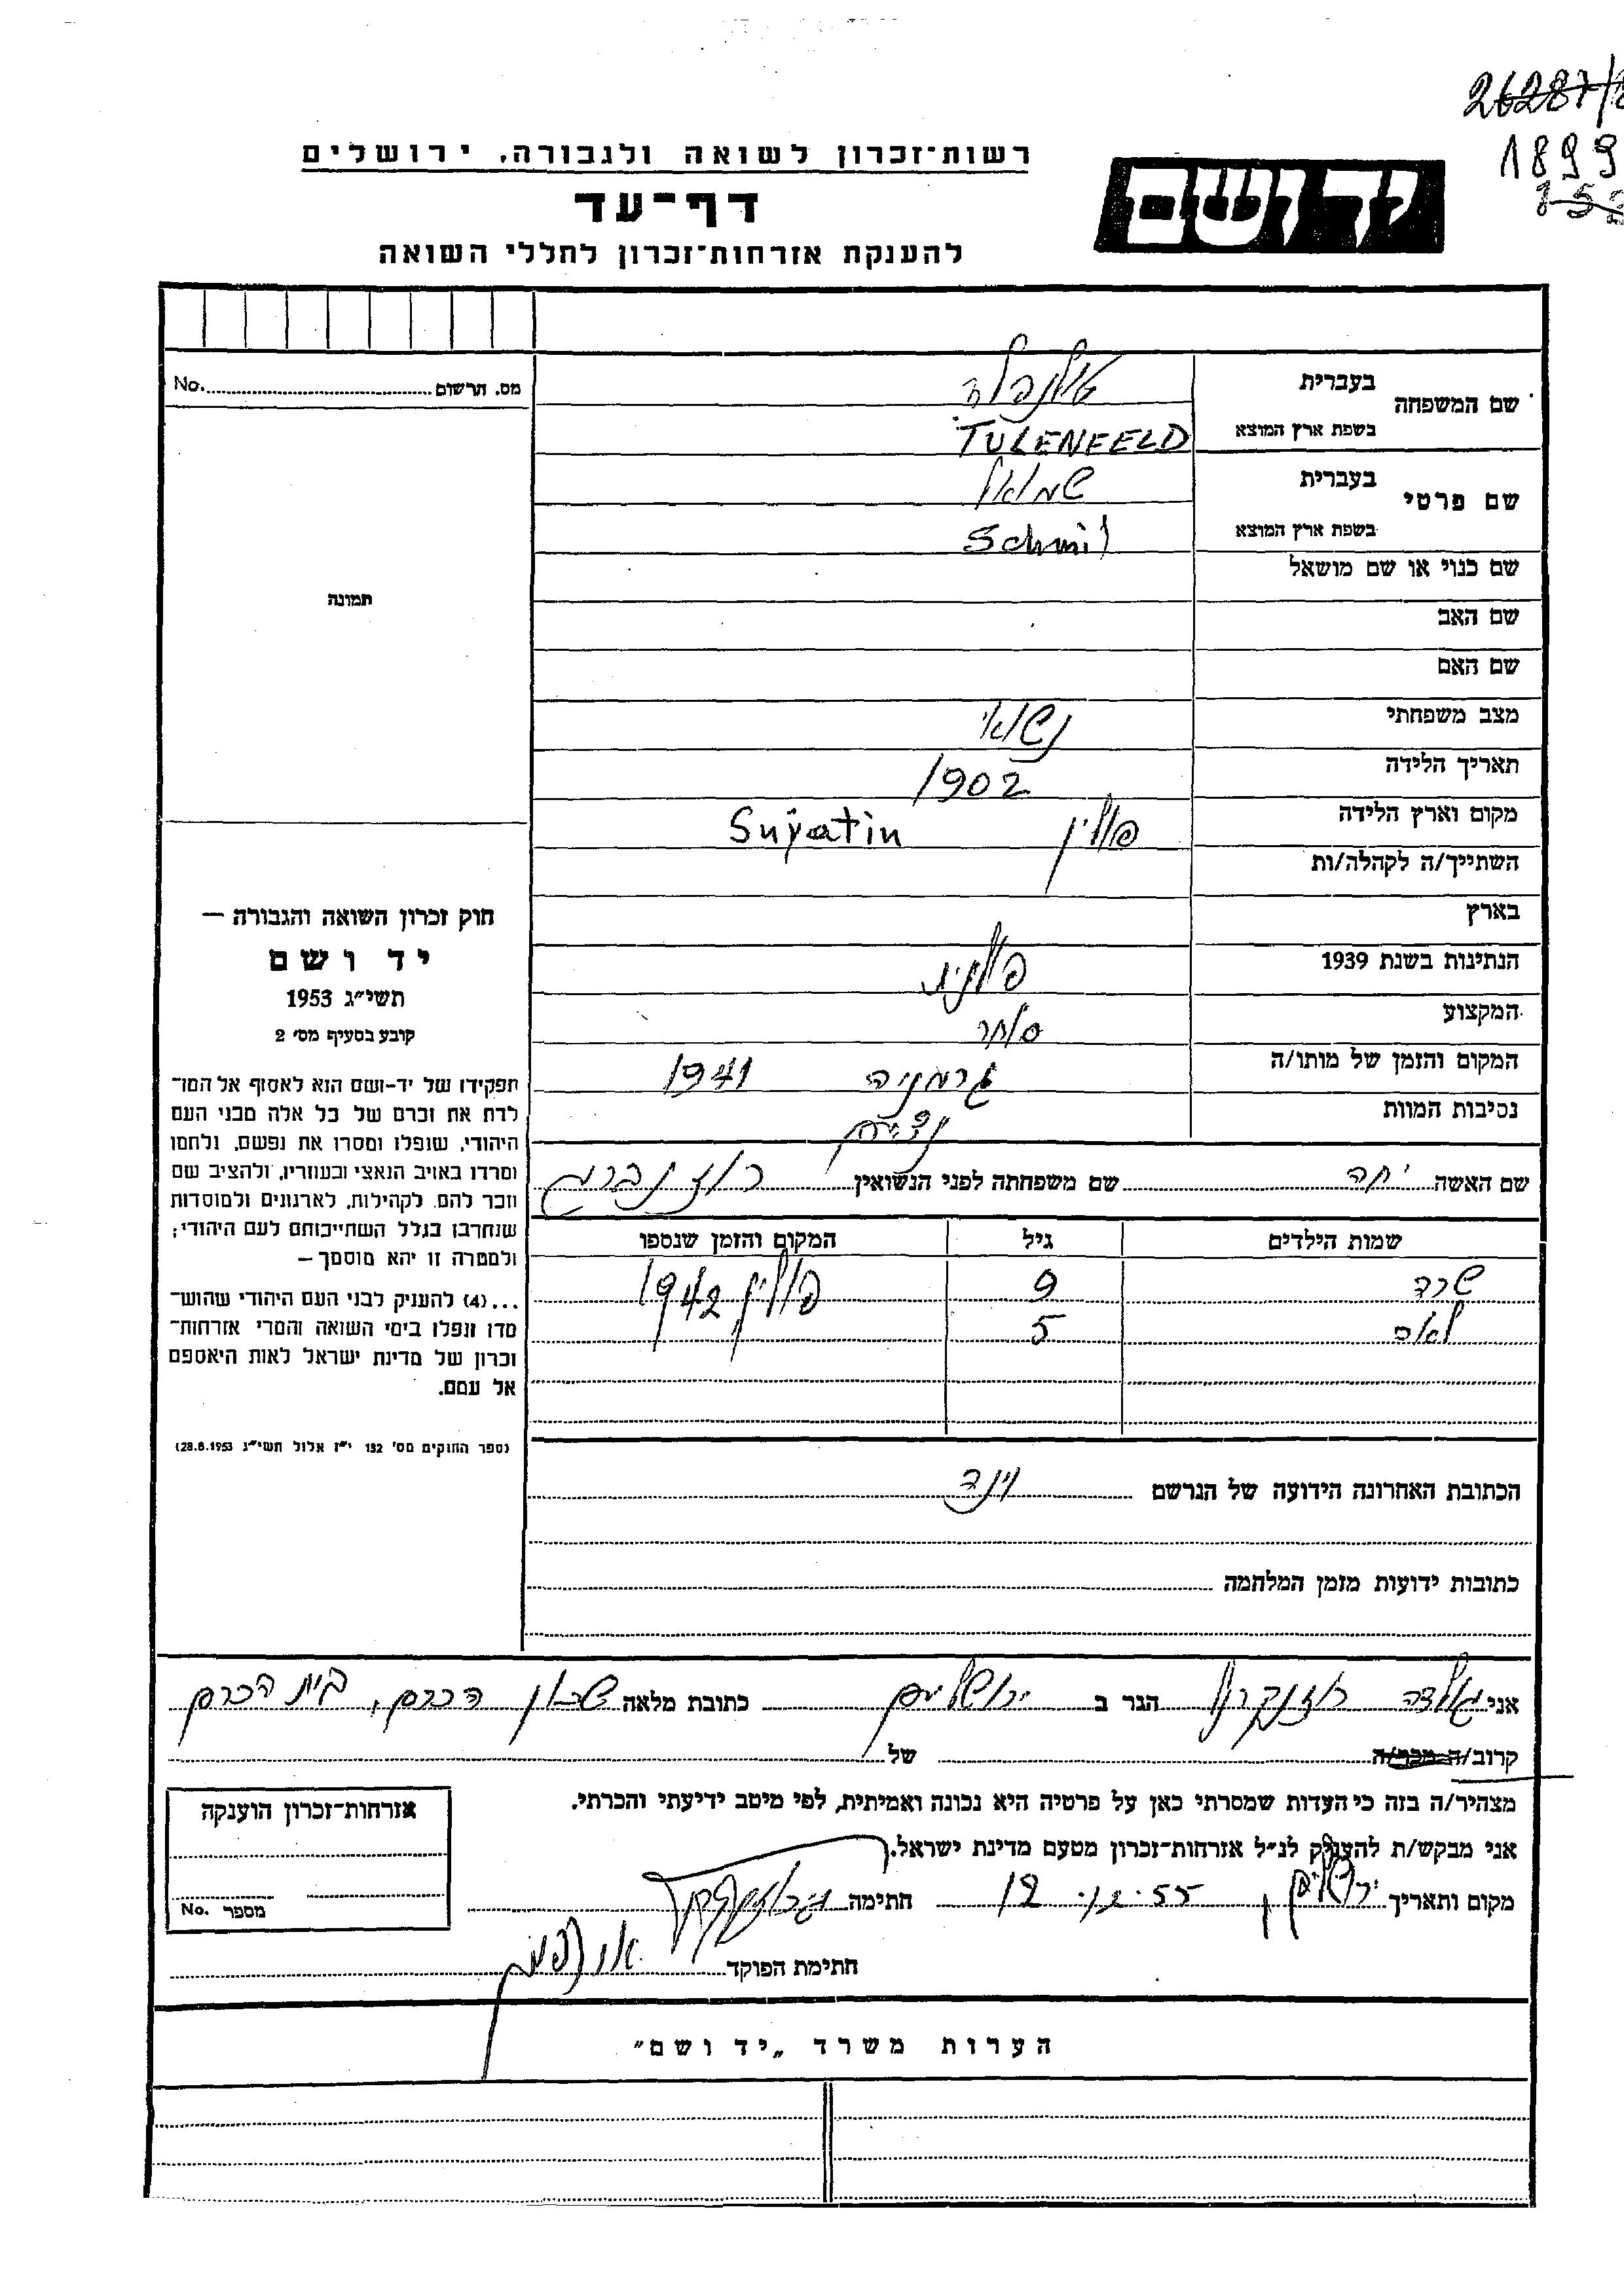 26287/8
1899
רשות־זכרון לשואה ולגבורה, ירושלים
יד ושם
דף־עד
להענקת אזרחות־זכרון לחללי השואה
מס. תרשום No.
שם המשפחה בעברית טילנפלד
בשפת ארץ המוצא TULENFELD
שם פרטי בעברית שמואל
בשפת ארץ המוצא Schmil
שם כנוי או שם מושאל
תמונה
שם האב
שם האם
מצב משפחתי נשוי
תאריך הלידה 1902
מקום וארץ הלידה פולין Snÿatin
השתייך/ה לקהלה/ות
בארץ
הנתינות בשנת 1939 פולנית
המקצוע סוחר
המקום והזמן של מותו/ה גרמניה 1941
נסיבות המוות
שם האשה שם משפחתה לפני הנשואין רוזנברג
שמות הילדים גיל המקום והזמן שנספו
9 פולין 1942
5
חוק זכרון השואה והגבורה —
יד ושם
תשי״ג 1953
קובע בסעיף מס׳ 2
תפקידו של יד-ושם הוא לאסוף אל המו־
לדת את זכרם של כל אלה מבני העם
היהודי, שנפלו ומסרו את נפשם, נלחמו
ומרדו באויב הנאצי ובעוזריו, ולהציב שם
וזכר להם, לקהילות, לארגונים ולמוסדות
שנחרבו בגלל השתייכותם לעם היהודי;
ולמטרה זו יהא מוסמך —
...(4) להעניק לבני העם היהודי שהוש־
מדו ונפלו בימי השואה והמרי אזרחות־
זכרון של מדינת ישראל לאות היאספם
אל עמם.
(ספר החוקים מס׳ 132 י״ז אלול תשי״ג 28.8.1953)
הכתובת האחרונה הידועה של הנרשם וינה
כתובות ידועות מזמן המלחמה
אני גולדה רוזנקרנץ הגר ב ירושלים כתובת מלאה שכון הכרם, בית הכרם
קרוב/ה מכר/ה של
מצהיר/ה בזה כי העדות שמסרתי כאן על פרטיה היא נכונה ואמיתית, לפי מיטב ידיעתי והכרתי.
אני מבקש/ת להעניק לנ״ל אזרחות־זכרון מטעם מדינת ישראל.
מקום ותאריך ירושלים חתימה
חתימת הפוקד
אזרחות־זכרון הוענקה
מספר No.
הערות משרד „יד ושם״